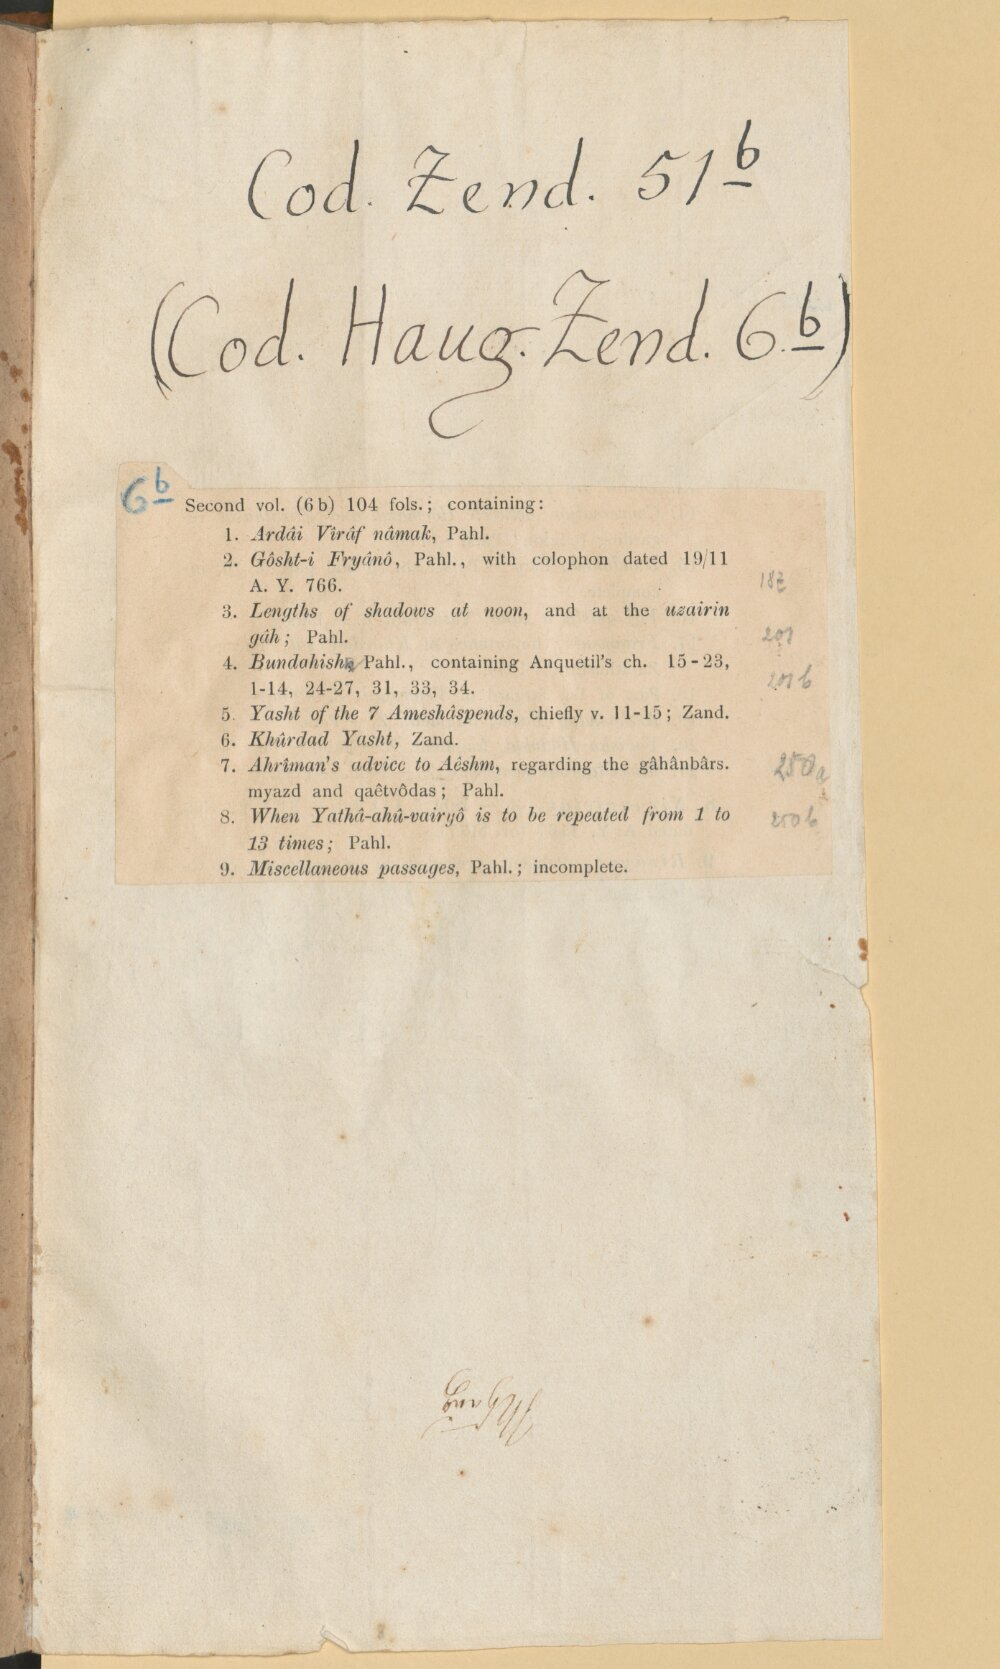 Cod. Zend. 51b
(Cod. Haug. Zend. 6.b)
6b
Second vol. (6 b) 104 fols.; containing:
1. Ardâi Vîrâf nâmak, Pahl.
2. Gôsht-i Fryânô, Pahl., with colophon dated 19/11
A. Y. 766.
3. Lengths of shadows at noon, and at the uzairin
201
gâh; Pahl.
4. Bundahish, Pahl., containing Anquetil's ch. 15-23,
201b
1-14, 24-27, 31, 33, 34.
5. Yasht of the 7 Ameshâspends, chiefly v. 11-15; Zand.
6. Khûrdad Yasht, Zand.
7. Ahrîman's advice to Aêshm, regarding the gâhânbârs.
250a
myazd and qaêtvôdas; Pahl.
8. When Yathâ-ahû-vairyô is to be repeated from 1 to
250b
13 times; Pahl.
9. Miscellaneous passages, Pahl.; incomplete.
MHaug